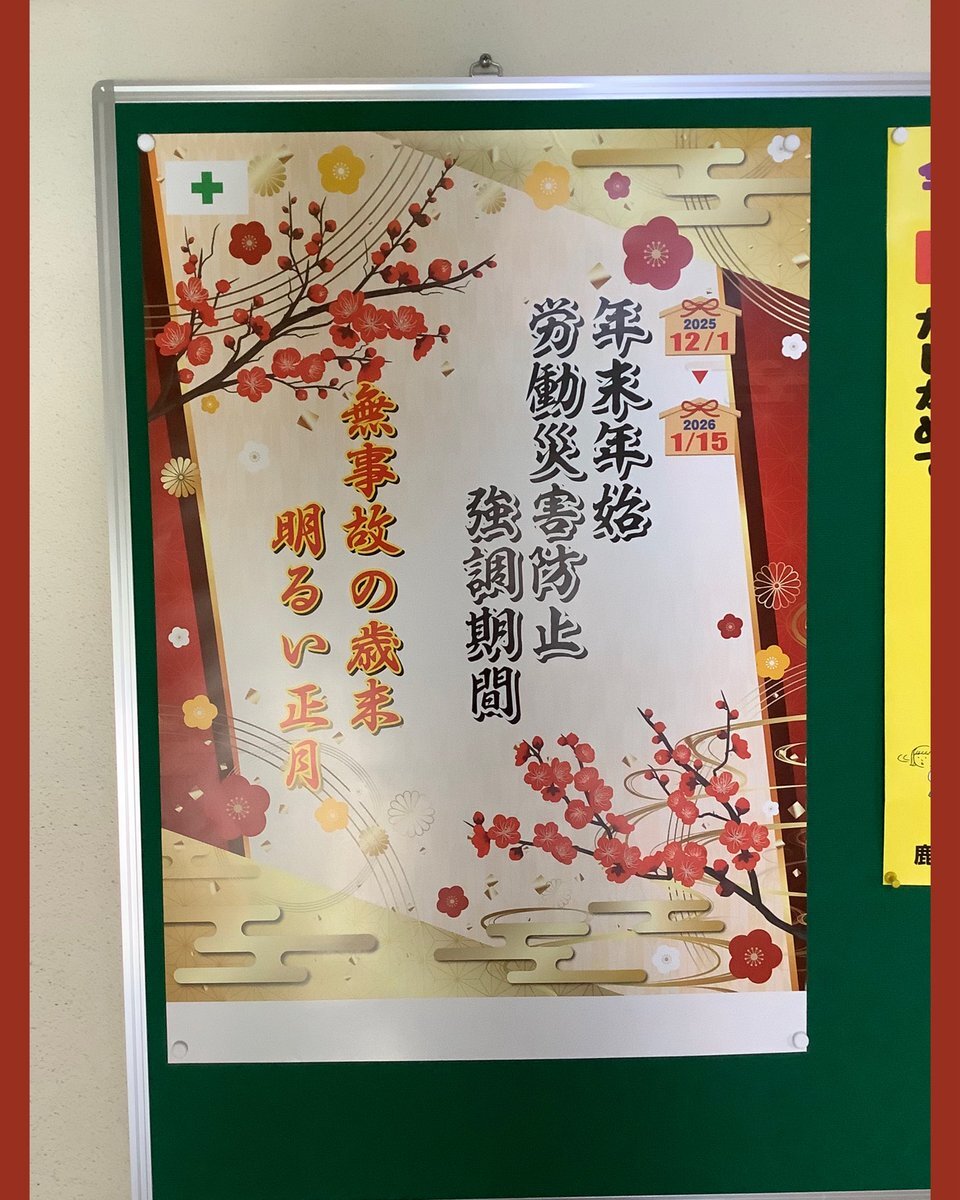 年末年始
労働災害防止
強調期間
2025
12/1
▼
2026
1/15
無事故の歳末
明るい正月